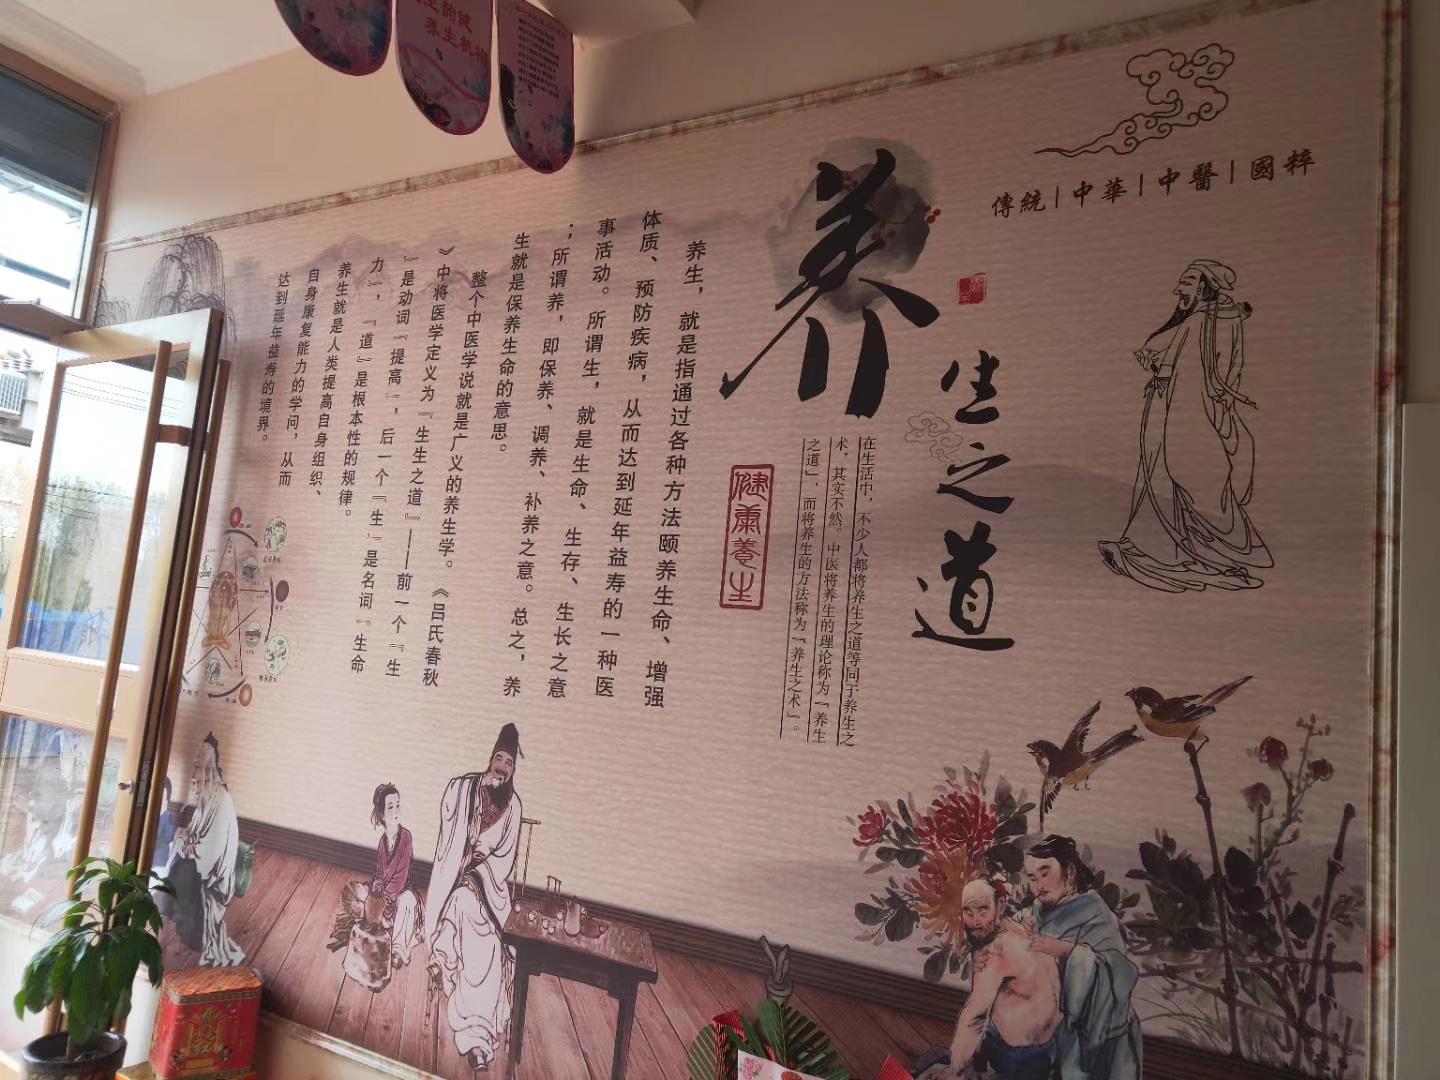 傳統|中華|中醫|國粹
养
生之道
在生活中，不少人都将养生之道等同于养生之
术，其实不然。中医将养生的理论称为『养生
之道』，而将养生的方法称为『养生之术』。
健康養生
养生，就是指通过各种方法颐养生命、增强
体质、预防疾病，从而达到延年益寿的一种医
事活动。所谓生，就是生命、生存、生长之意
；所谓养，即保养、调养、补养之意。总之，养
生就是保养生命的意思。
整个中医学说就是广义的养生学。《吕氏春秋
》中将医学定义为『生生之道』——前一个『生
』是动词『提高』，后一个『生』是名词『生命
力』，『道』是根本性的规律。
养生就是人类提高自身组织、
自身康复能力的学问，从而
达到延年益寿的境界。
养生机构